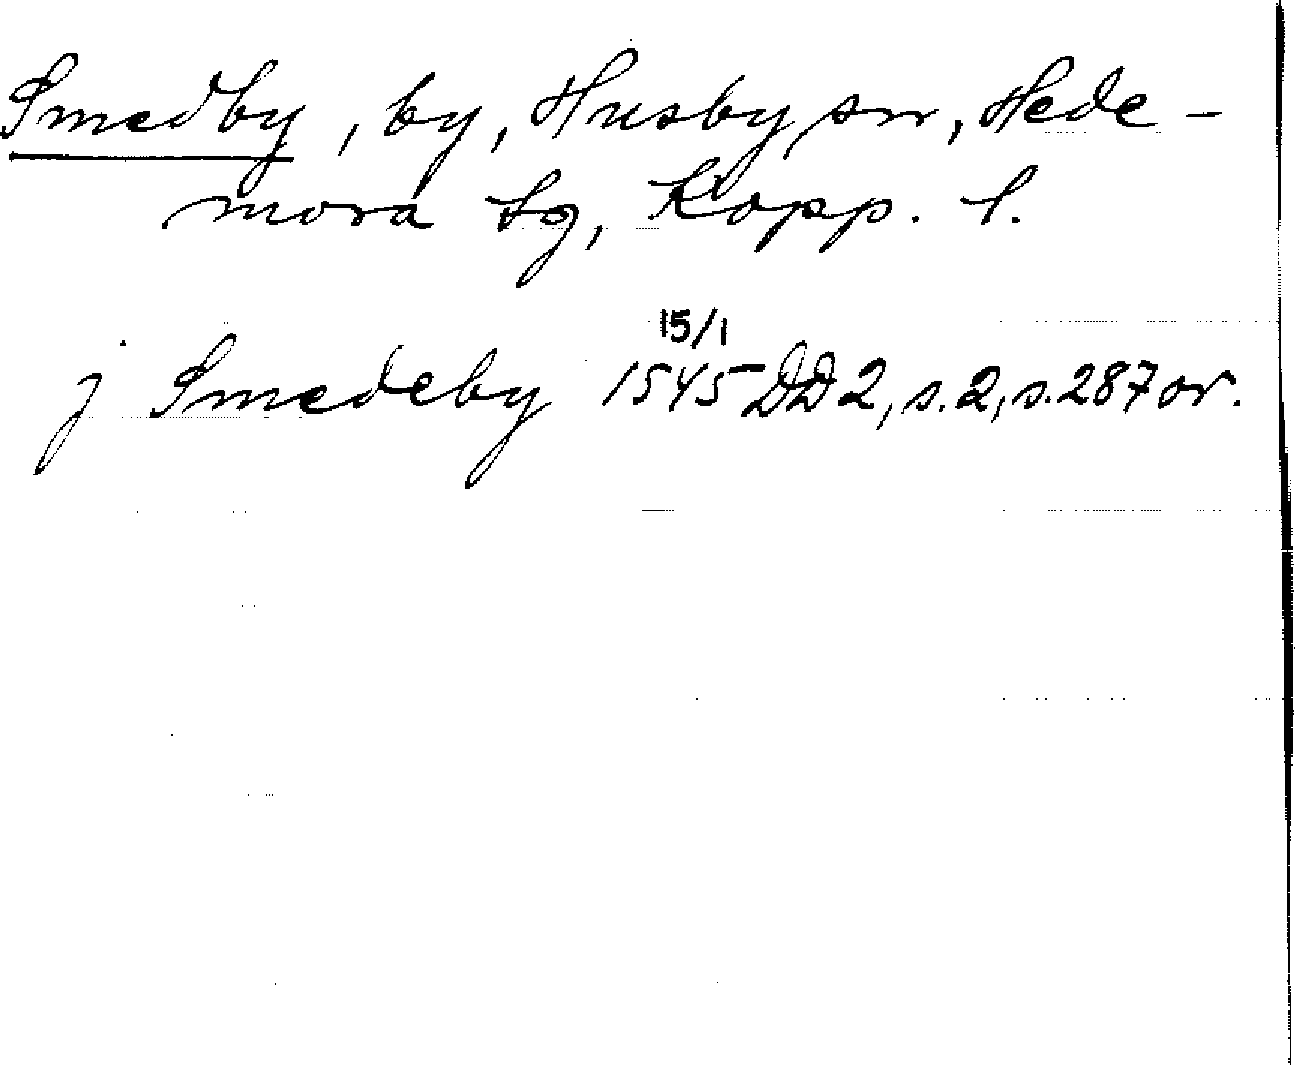 Smedby, by, Husby sn, Hede-
mora tg, Kopp. l.
15/1
j Smedeby 1545 DD 2, s. 2, s. 287 or.